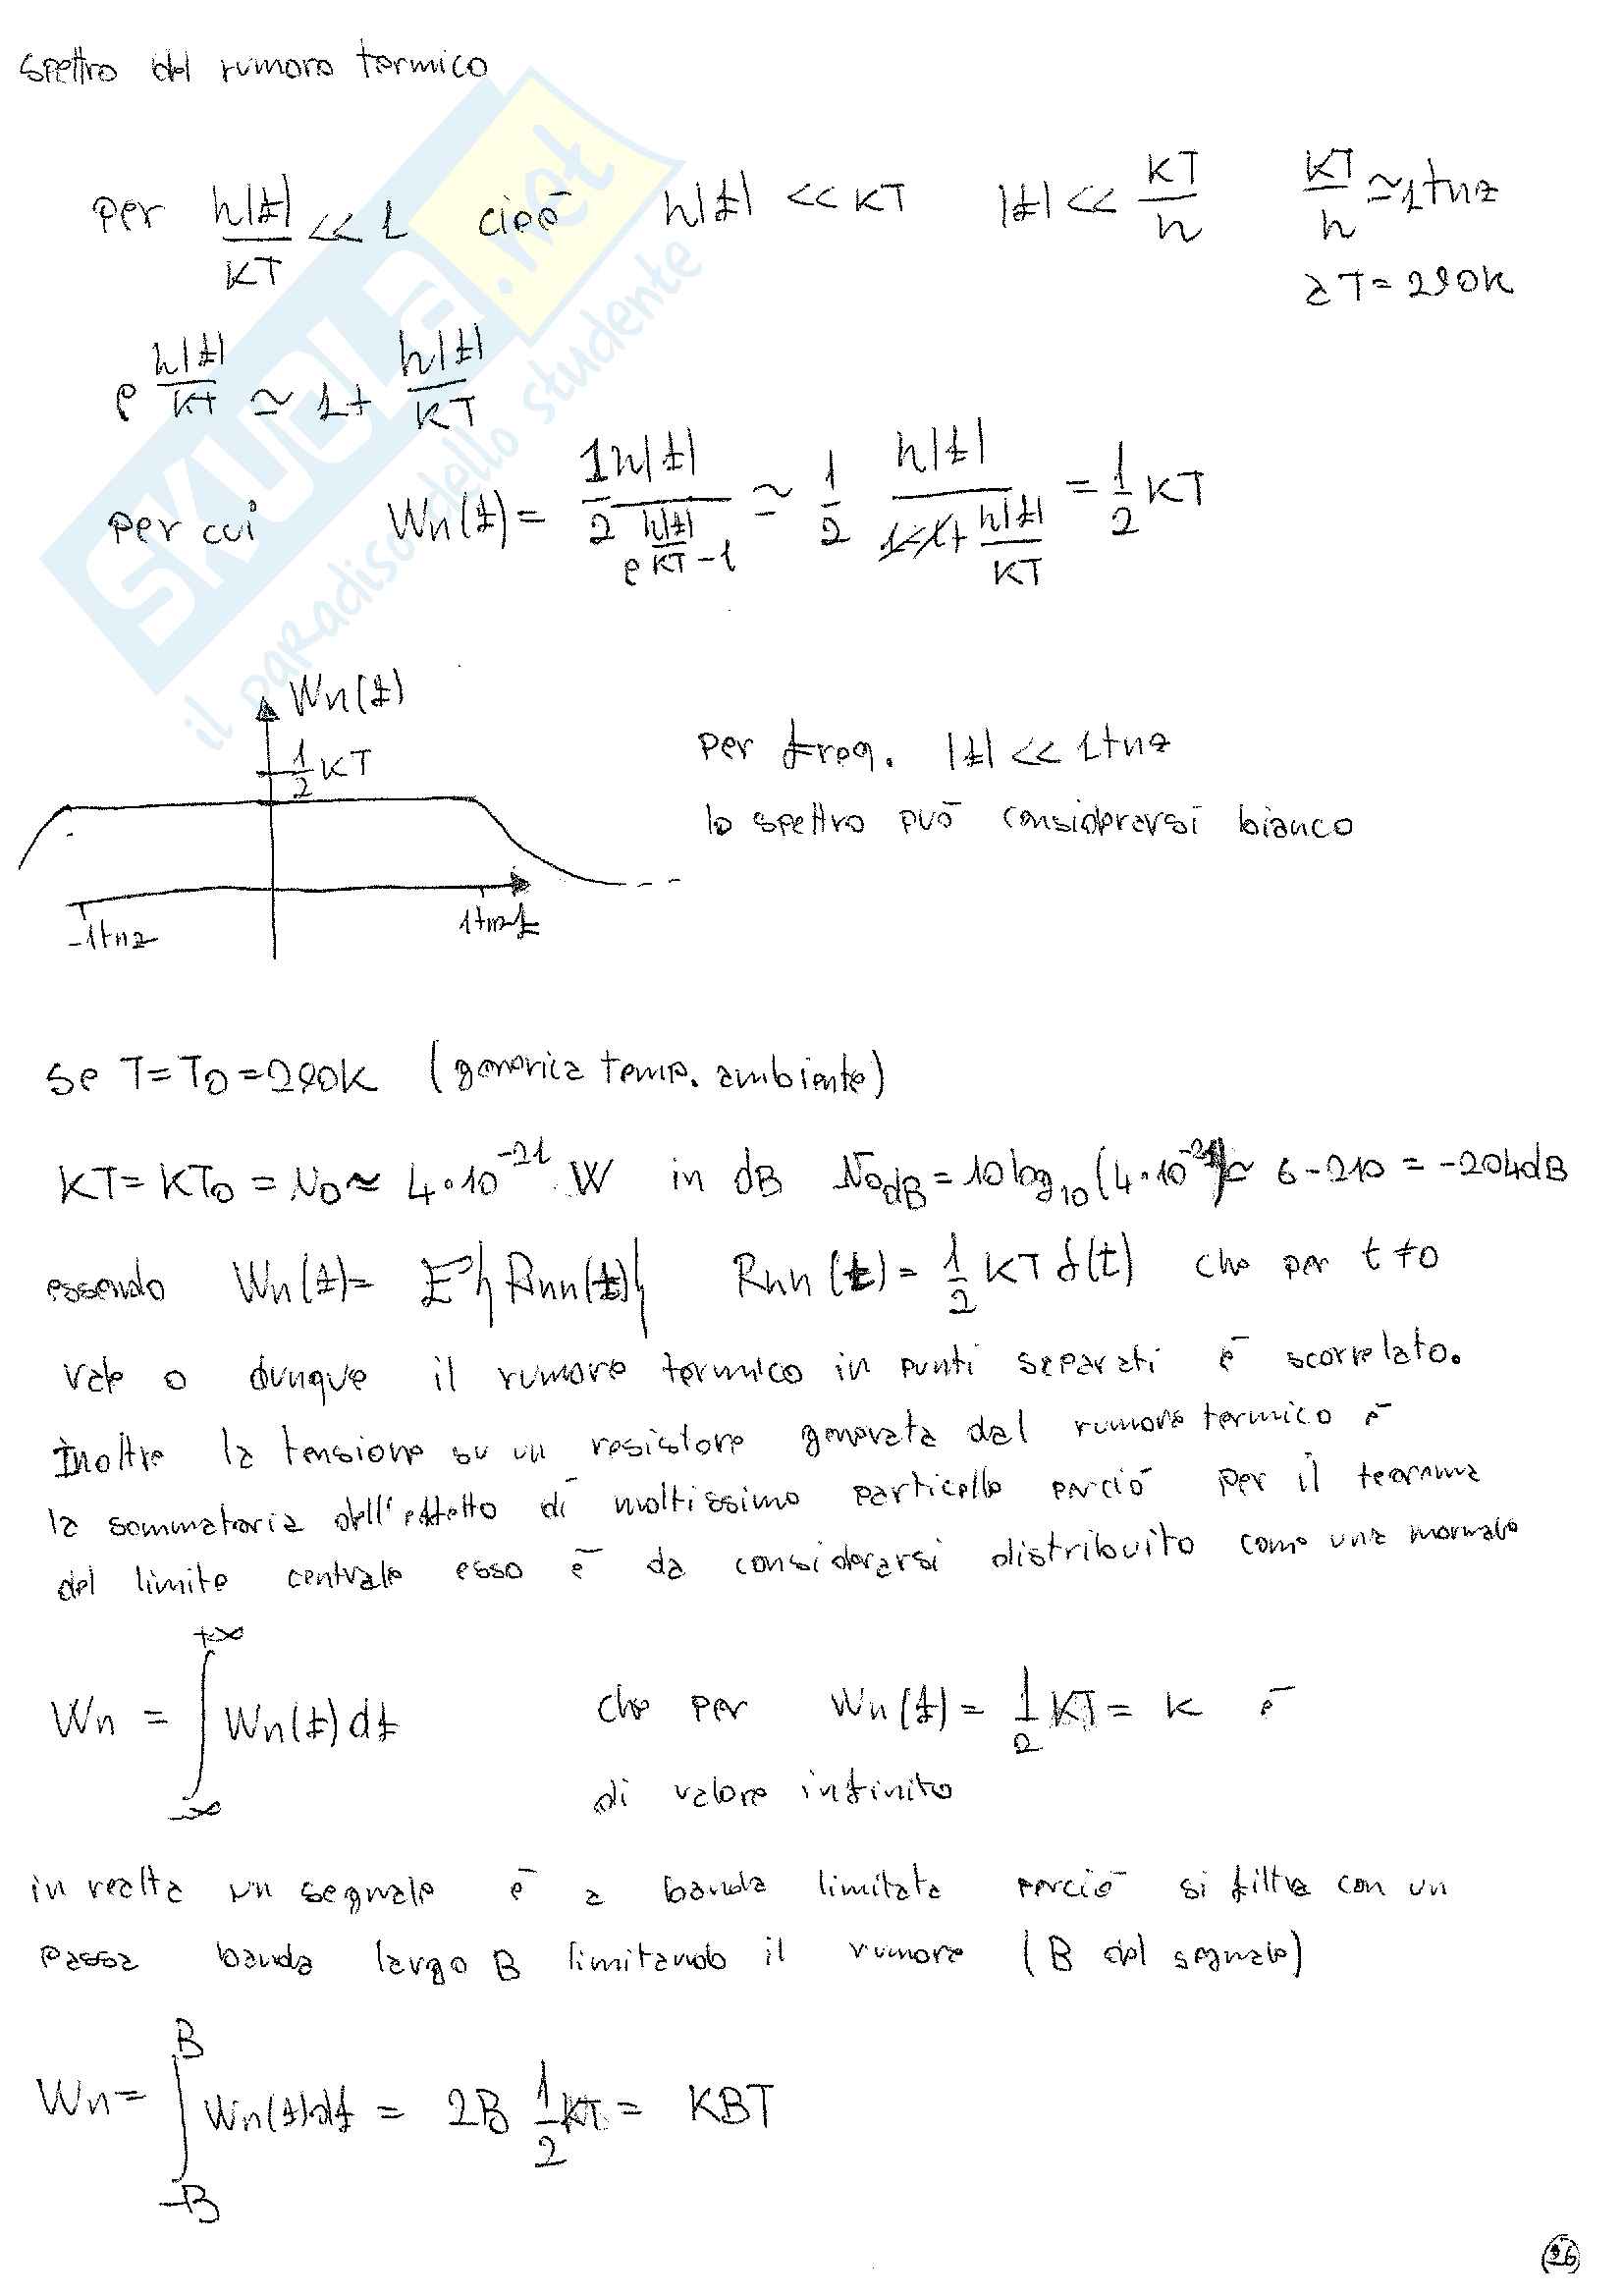 Spettro del rumore termico
per h|f|/KT << 1 cioè h|f| << KT |f| << KT/h KT/h ≃ 1THz
a T = 290K
e^(h|f|/KT) ≃ 1 + h|f|/KT
per cui Wn(f) = 1/2 h|f|/(e^(h|f|/KT) - 1) ≃ 1/2 h|f|/(1-1+h|f|/KT) = 1/2 KT
Wn(f)
1/2 KT
-1THz
1THz f
per freq. |f| << 1THz
lo spettro può considerarsi bianco
Se T = T0 = 290K (generica temp. ambiente)
KT = KT0 = N0 ≈ 4·10^-21 W in dB N0dB = 10 log10 (4·10^-21) ≃ 6-210 = -204dB
essendo Wn(f) = F{Rnn(t)} Rnn(t) = 1/2 KT δ(t) che per t≠0
vale 0 dunque il rumore termico in punti separati è scorrelato.
Inoltre la tensione su un resistore generata dal rumore termico è
la sommatoria dell'effetto di moltissime particelle perciò per il teorema
del limite centrale esso è da considerarsi distribuito come una normale
Wn = ∫ -∞ +∞ Wn(f) df che per Wn(f) = 1/2 KT = K è
di valore infinito
in realta un segnale è a banda limitata perciò si filtra con un
passa banda largo B limitando il rumore (B del segnale)
Wn = ∫ -B B Wn(f)df = 2B 1/2 KT = KBT
SKUOLA.net
il paradiso dello studente